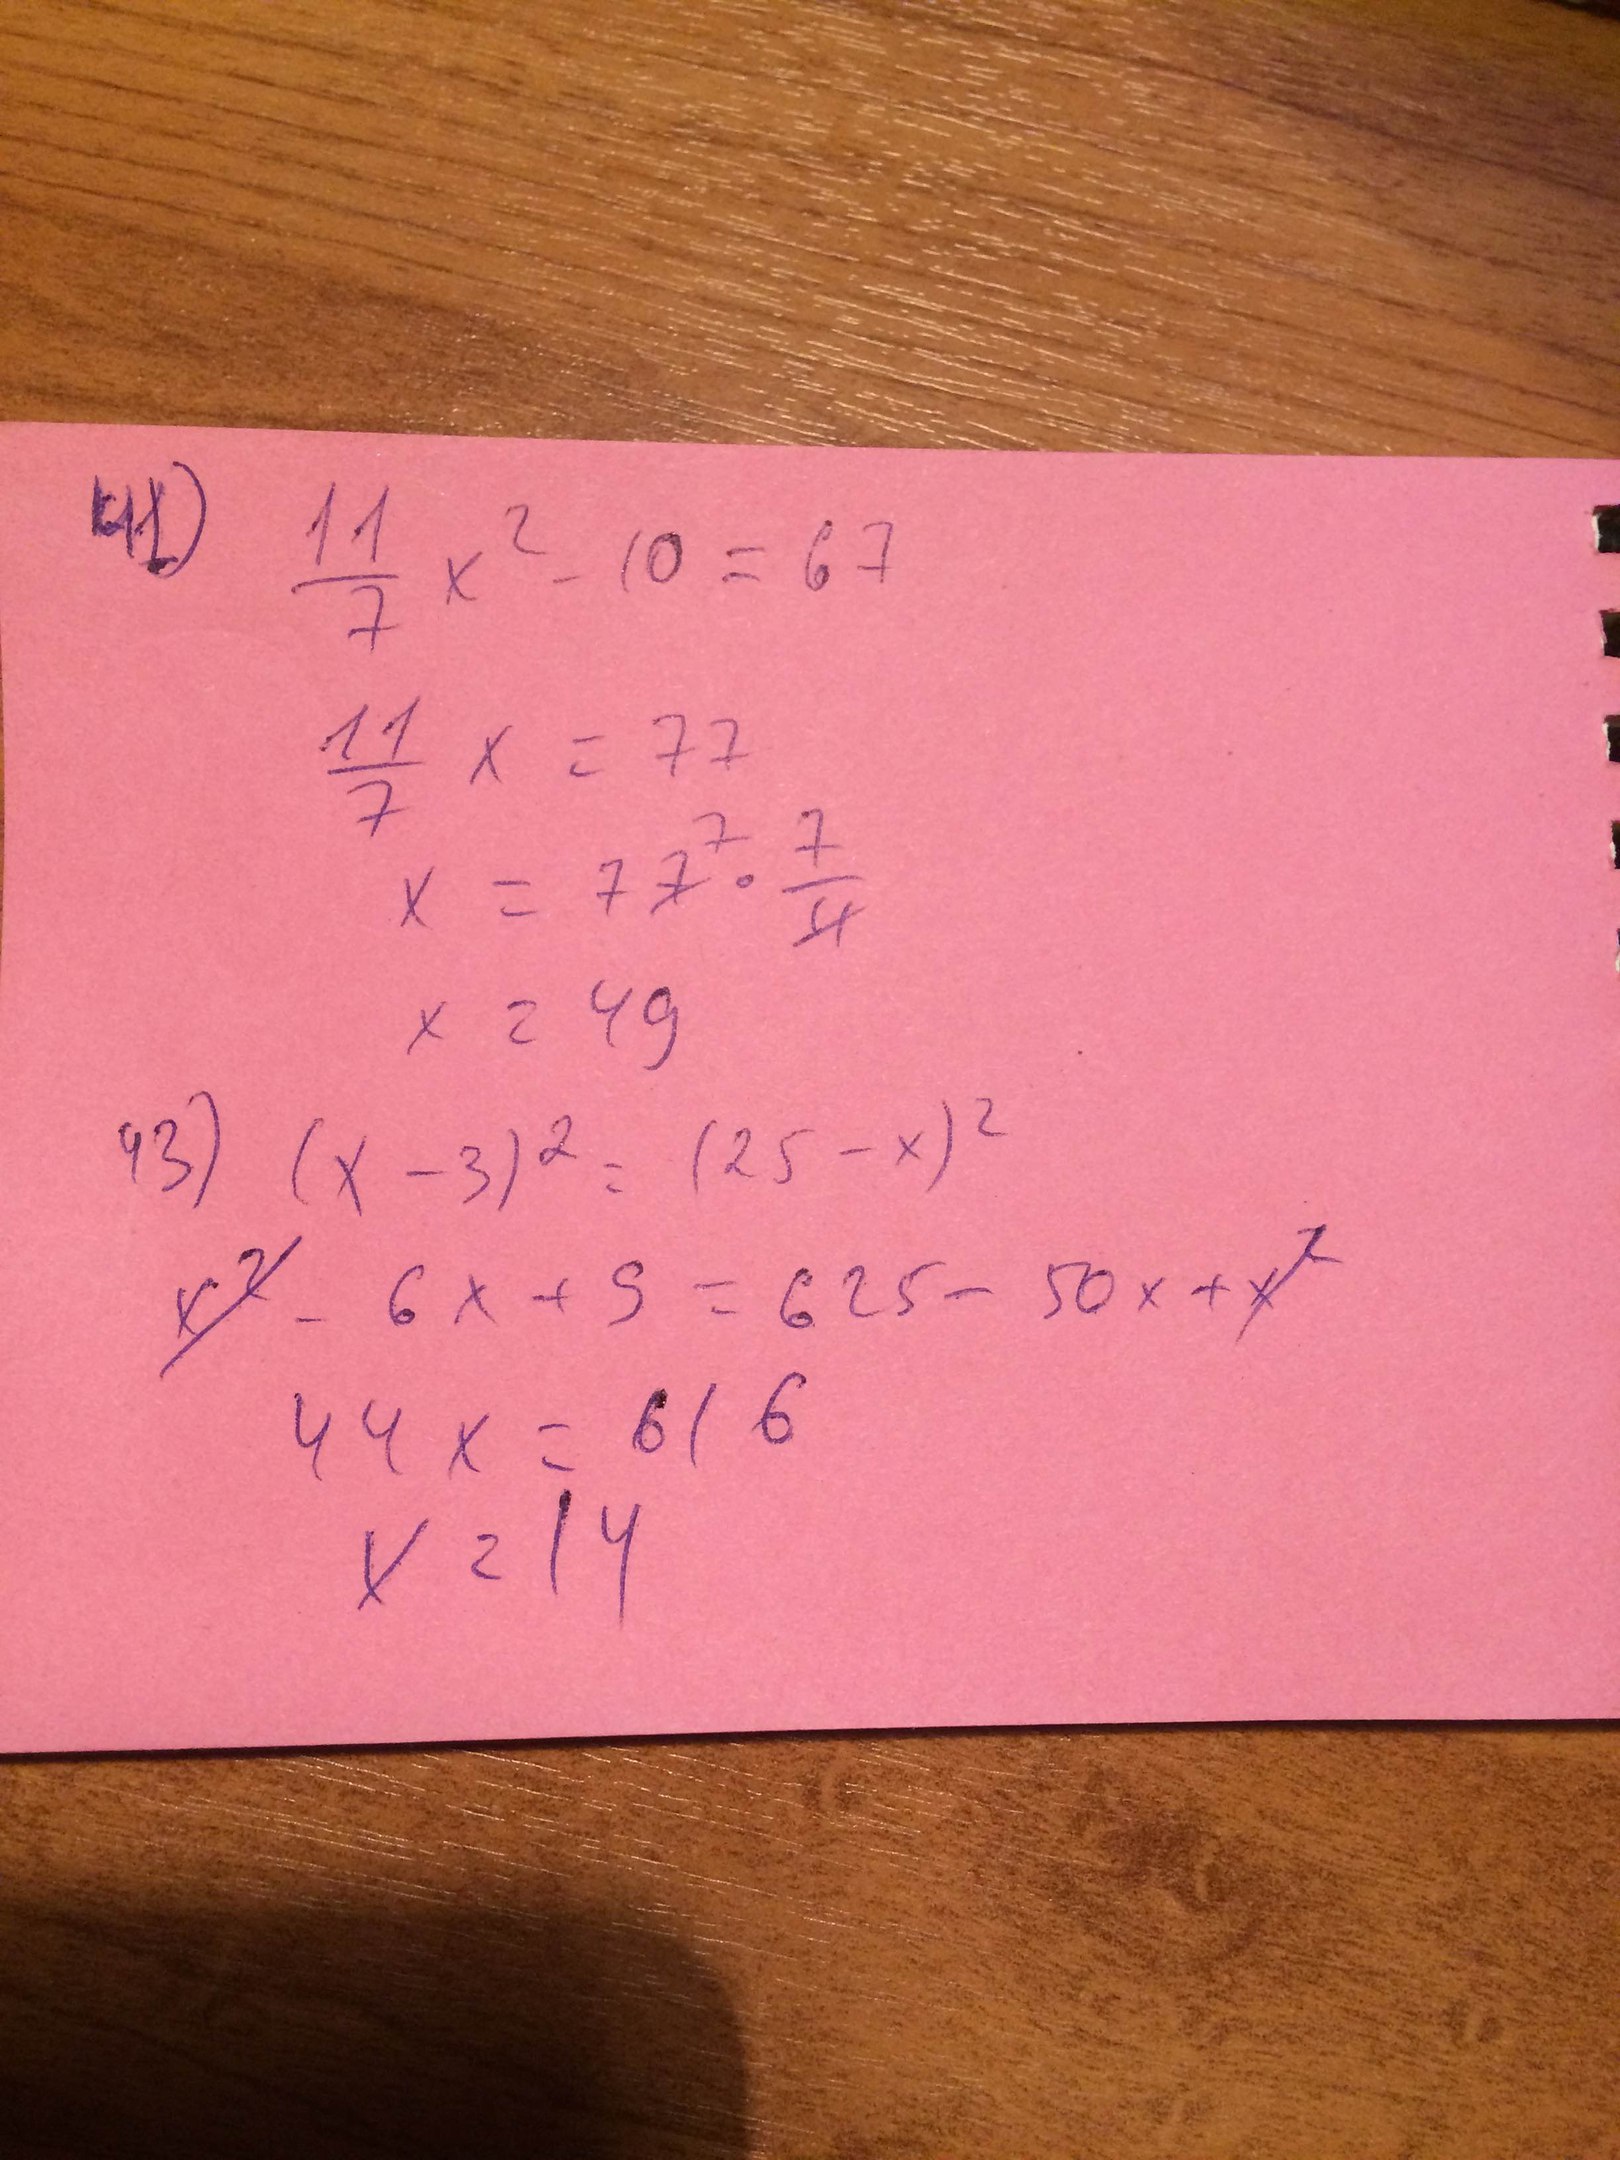 41) 11/7 x² - 10 = 67
11/7 x = 77
x = 77⁷ · 7/11
x = 49
43) (x - 3)² = (25 - x)²
x² - 6x + 9 = 625 - 50x + x²
44x = 616
x = 14